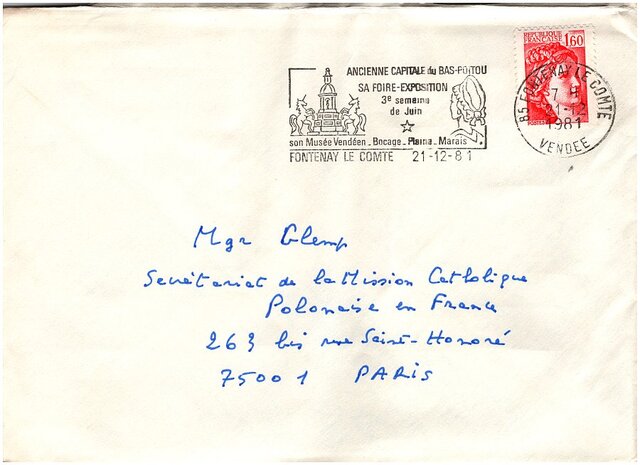 ANCIENNE CAPITALE du BAS-POITOU
SA FOIRE-EXPOSITION
3e semaine
de Juin
son Musée Vendéen _ Bocage _ Plaine _ Marais
FONTENAY LE COMTE 21-12-81
REPUBLIQUE
FRANÇAISE 1,60
85 FONTENAY LE COMTE
1981
VENDEE
Mgr Glemp
Secrétariat de la Mission Catholique
Polonaise en France
263 bis rue Saint-Honoré
75001 PARIS